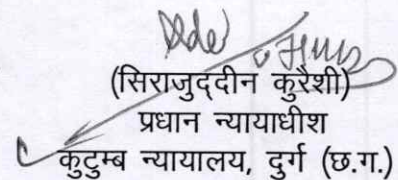 (सिराजुद्दीन कुरैशी)
प्रधान न्यायाधीश
कुटुम्ब न्यायालय, दुर्ग (छ.ग.)